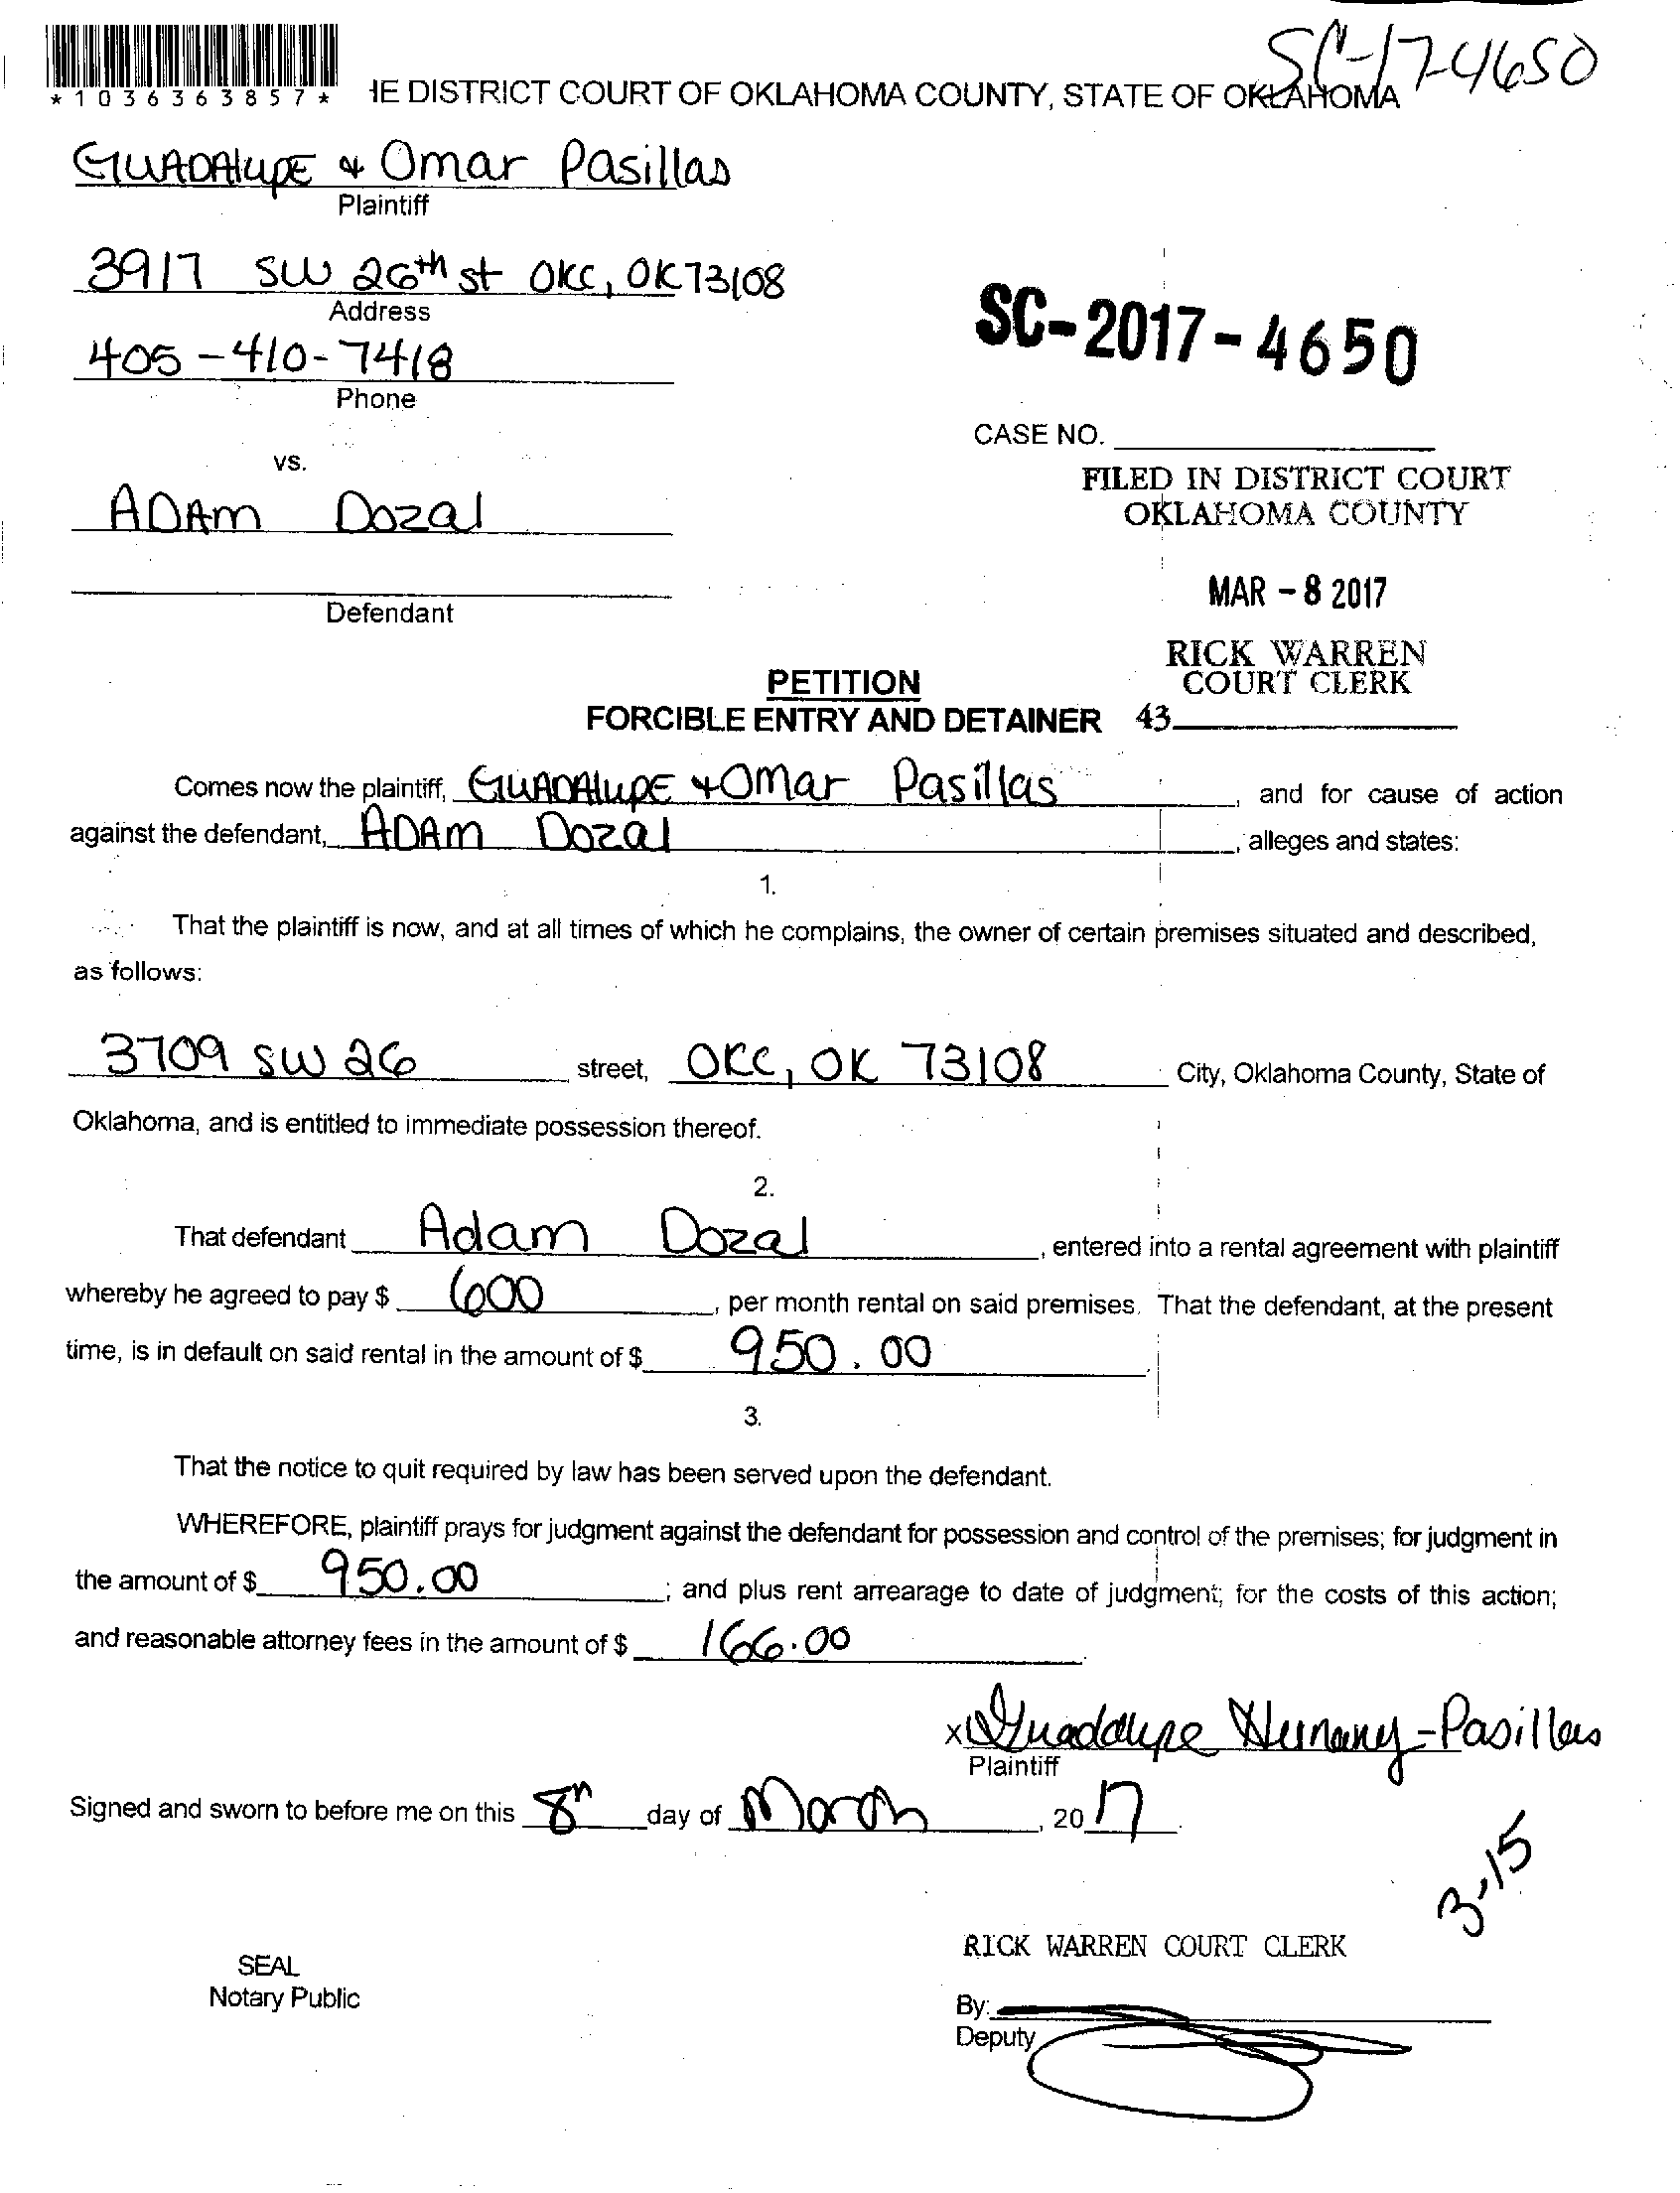 SC-17-4650
*1036363857*
IE DISTRICT COURT OF OKLAHOMA COUNTY, STATE OF OKLAHOMA
GUADAlUPE & Omar Pasillas
Plaintiff
3917 SW 26th st OKC, OK 73108
Address
405-410-7418
Phone
SC-2017-4650
CASE NO.
vs.
FILED IN DISTRICT COURT
OKLAHOMA COUNTY
ADAm Dozal
MAR - 8 2017
Defendant
RICK WARREN
COURT CLERK
PETITION
FORCIBLE ENTRY AND DETAINER 43
Comes now the plaintiff, GUADAlUPE + Omar Pasillas, and for cause of action
against the defendant, ADAm Dozal, alleges and states:
1.
That the plaintiff is now, and at all times of which he complains, the owner of certain premises situated and described,
as follows:
3709 SW 26 street, OKC, OK 73108 City, Oklahoma County, State of
Oklahoma, and is entitled to immediate possession thereof.
2.
That defendant Adam Dozal, entered into a rental agreement with plaintiff
whereby he agreed to pay $ 600, per month rental on said premises. That the defendant, at the present
time, is in default on said rental in the amount of $ 950.00.
3.
That the notice to quit required by law has been served upon the defendant.
WHEREFORE, plaintiff prays for judgment against the defendant for possession and control of the premises; for judgment in
the amount of $ 950.00; and plus rent arrearage to date of judgment; for the costs of this action;
and reasonable attorney fees in the amount of $ 166.00.
x Guadalupe -Pasillas
Plaintiff
Signed and sworn to before me on this 8th day of March, 2017.
3-15
RICK WARREN COURT CLERK
SEAL
Notary Public
By:
Deputy